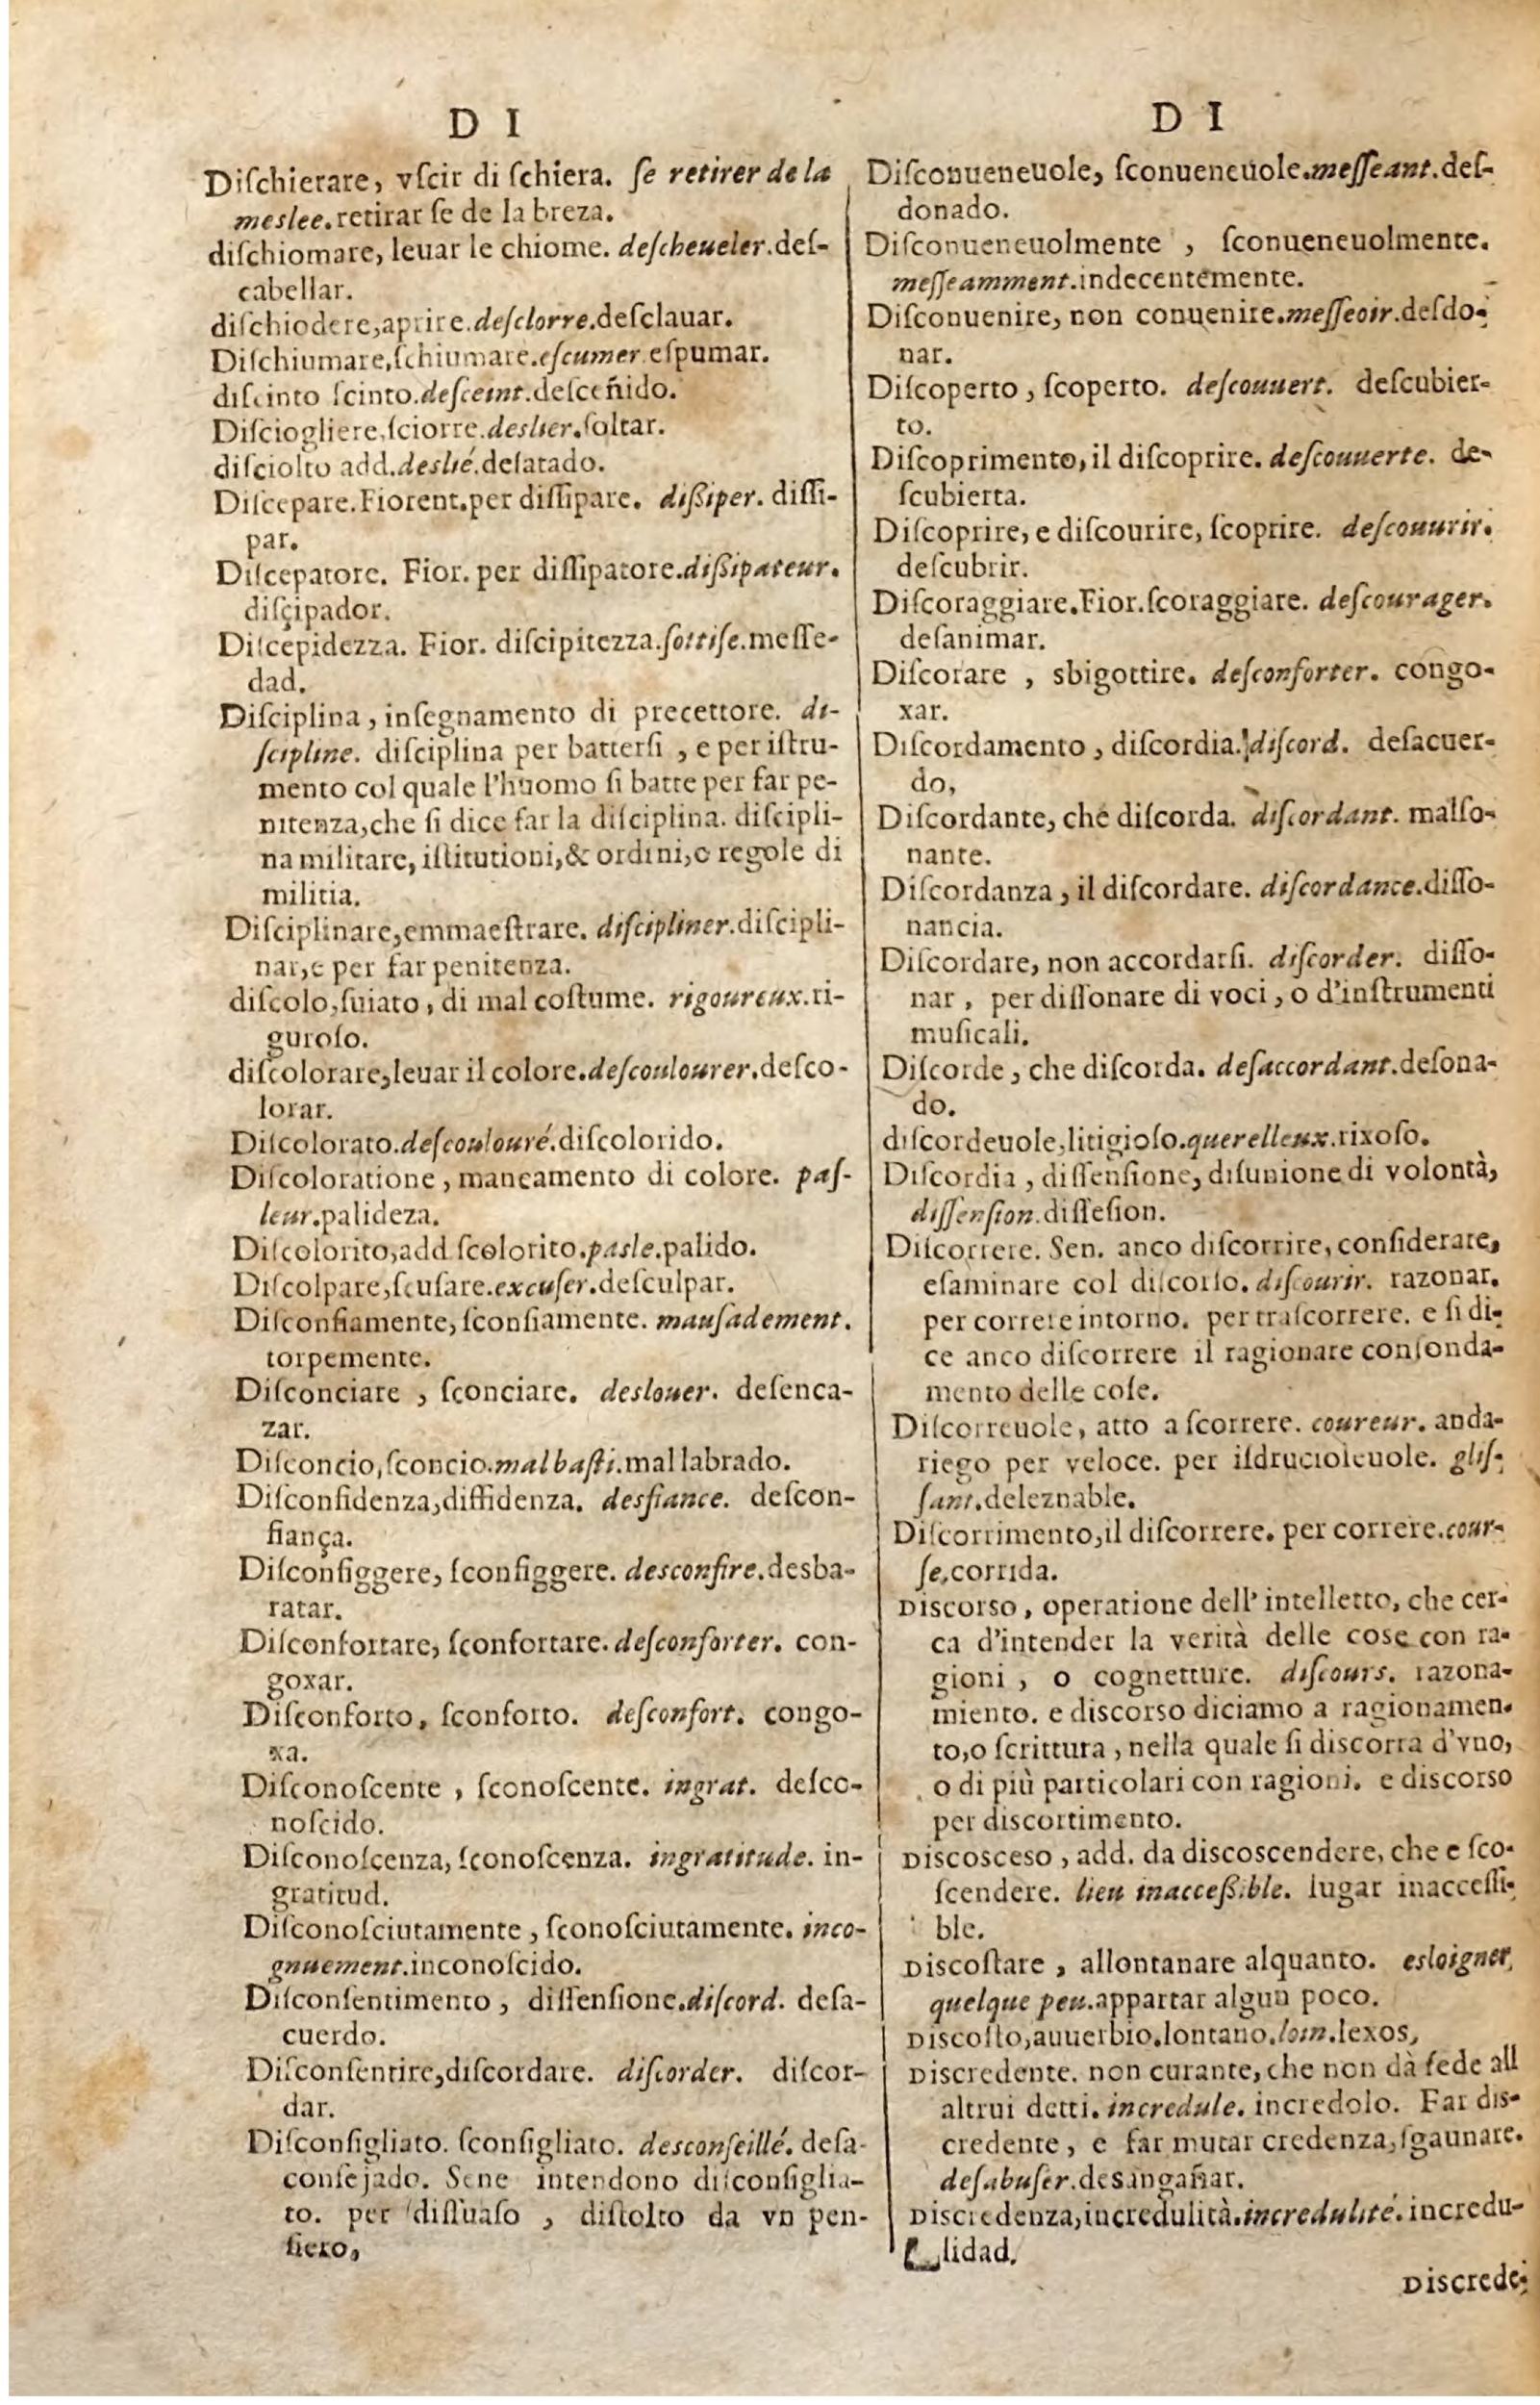 D I
Diſchierare, vſcir di ſchiera. ſe retirer de la
meslee. retirar ſe de la breza.
diſchiomare, leuar le chiome. deſcheueler. deſ-
cabellar.
diſchiodere, aprire. deſclorre. deſclauar.
Diſchiumare, ſchiumare. eſcumer. eſpumar.
diſcinto ſcinto. deſceint. deſceñido.
Diſciogliere, ſciorre. deslier. ſoltar.
diſciolto add. deslié. deſatado.
Diſcepare. Fiorent. per diſſipare. dißiper. diſſi-
par.
Diſcepatore. Fior. per diſſipatore. dißipateur.
diſçipador.
Diſcepidezza. Fior. diſcipitezza. ſottiſe. meſſe-
dad.
Diſciplina, inſegnamento di precettore. di-
ſcipline. diſciplina per batterſi, e per iſtru-
mento col quale l'huomo ſi batte per far pe-
nitenza, che ſi dice far la diſciplina. diſcipli-
na militare, iſtitutioni, & ordini, o regole di
militia.
Diſciplinare, emmaeſtrare. diſcipliner. diſcipli-
nar, e per far penitenza.
diſcolo, ſuiato, di mal coſtume. rigoureux. ri-
guroſo.
diſcolorare, leuar il colore. deſcoulourer. deſco-
lorar.
Diſcolorato. deſcoulouré. diſcolorido.
Diſcoloratione, mancamento di colore. paſ-
leur. palideza.
Diſcolorito, add ſcolorito. pasle. palido.
Diſcolpare, ſcuſare. excuſer. deſculpar.
Diſconfiamente, ſconfiamente. mauſadement.
torpemente.
Diſconciare, ſconciare. deslouer. deſenca-
zar.
Diſconcio, ſconcio. mal baſti. mal labrado.
Diſconfidenza, diffidenza. desfiance. deſcon-
fiança.
Diſconfiggere, ſconfiggere. desconfire. desba-
ratar.
Diſconfortare, ſconfortare. deſconforter. con-
goxar.
Diſconforto, ſconforto. deſconfort. congo-
xa.
Diſconoſcente, ſconoſcente. ingrat. deſco-
noſcido.
Diſconoſcenza, ſconoſcenza. ingratitude. in-
gratitud.
Diſconoſciutamente, ſconoſciutamente. inco-
gnuement. inconoſcido.
Diſconſentimento, diſſenſione. diſcord. deſa-
cuerdo.
Diſconſentire, diſcordare. diſcorder. diſcor-
dar.
Diſconſigliato. ſconſigliato. desconſeillé. deſa-
conſejado. Sene intendono diſconſiglia-
to. per diſſuaſo, diſtolto da vn pen-
ſiero,
D I
Diſconueneuole, ſconueneuole. meſſeant. deſ-
donado.
Diſconueneuolmente, ſconueneuolmente.
meſſeamment. indecentemente.
Diſconuenire, non conuenire. meſſeoir. deſdo-
nar.
Diſcoperto, ſcoperto. deſcouuert. deſcubier-
to.
Diſcoprimento, il diſcoprire. deſcouuerte. de-
ſcubierta.
Diſcoprire, e diſcourire, ſcoprire. deſcouurir.
deſcubrir.
Diſcoraggiare. Fior. ſcoraggiare. deſcourager.
deſanimar.
Diſcorare, sbigottire. deſconforter. congo-
xar.
Diſcordamento, diſcordia. diſcord. deſacuer-
do,
Diſcordante, che diſcorda. diſcordant. malſo-
nante.
Diſcordanza, il diſcordare. diſcordance. diſſo-
nancia.
Diſcordare, non accordarſi. diſcorder. diſſo-
nar, per diſſonare di voci, o d'inſtrumenti
muſicali.
Diſcorde, che diſcorda. deſaccordant. deſona-
do.
diſcordeuole, litigioſo. querelleux. rixoſo.
Diſcordia, diſſenſione, diſunione di volontà,
diſſenſion. diſſeſion.
Diſcorrere. Sen. anco diſcorrire, conſiderare,
eſaminare col diſcorſo. diſcourir. razonar.
per correre intorno. per traſcorrere. e ſi di-
ce anco diſcorrere il ragionare conſonda-
mento delle coſe.
Diſcorreuole, atto a ſcorrere. coureur. anda-
riego per veloce. per iſdrucioleuole. gliſ-
ſant. deleznable.
Diſcorrimento, il diſcorrere. per correre. cour-
ſe. corrida.
Discorso, operatione dell' intelletto, che cer-
ca d'intender la verità delle cose con ra-
gioni, o cognetture. diſcours. razona-
miento. e discorso diciamo a ragionamen-
to, o ſcrittura, nella quale ſi discorra d'vno,
o di più particolari con ragioni. e discorso
per discortimento.
Discosceso, add. da discoscendere, che e ſco-
ſcendere. lieu inacceßible. lugar inacceſſi-
ble.
Discoſtare, allontanare alquanto. esloigner
quelque peu. appartar algun poco.
Discoſto, auuerbio. lontano. loin. lexos,
Discredente. non curante, che non dà fede all
altrui detti. incredule. incredolo. Far dis-
credente, e far mutar credenza, ſgaunare.
deſabuſer. desangañar.
Discredenza, incredulità. incredulité. incredu-
lidad.
Discrede-